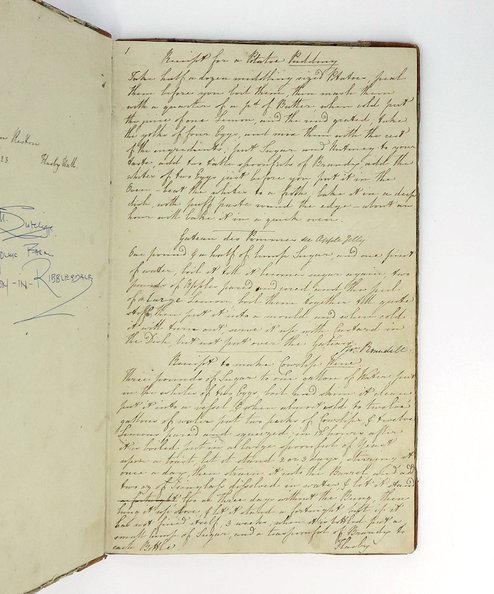 23
Sutcliffe
-IN-RIBBLESDALE
1
Receipt for a Potatoe Pudding
Take half a dozen middling sized Potatoes, peal
them before you boil them, then mash them
with a quarter of a pd. of Butter when cold put
the juice of one Lemon, and the rind grated, take
the yolks of four Eggs, and mix them with the rest
of the ingredients, put Sugar and Nutmeg to your
taste, add two table spoonfuls of Brandy add the
whites of two Eggs just before you put it in the
Oven - beat the whites to a froth, bake it in a deep
dish with puff paste round the edge - about an
hour will bake it in a quick oven.
Gateau des Pommes or Apple Jelly
One pound & a half of lump Sugar, and one pint
of water, boil it till it becomes sugar again, two
pounds of Apples pared and cored and the peel
of a large Lemon boil them together till quite
stiff then put it into a mould and when cold
it with turn out serve it up with Custard in
the Dish, but not put over the Gateau
Receipt to make Cowslip Wine
Three pounds of Sugar to one gallon of Water, put
in the whites of Eggs, boil and skim it clean
put it into a vessel & when almost cold to twelve
gallons of water put two pecks of Cowslips & twelve
Lemons pared and squeezed, in
it is boiled, put in a large spoonful of Yeast
upon a toast, let it stand 2 or 3 days stirring it
once a day, then strain it into the Barrel
two oz of Isinglass dissolved in water & let it stand
a fortnight two or three days without the Bung, then
bung it up close, & let it stand a fortnight
has not fined itself 3 weeks, when bottled put a
small lump of Sugar, and a teaspoonful of Brandy to
each Bottle